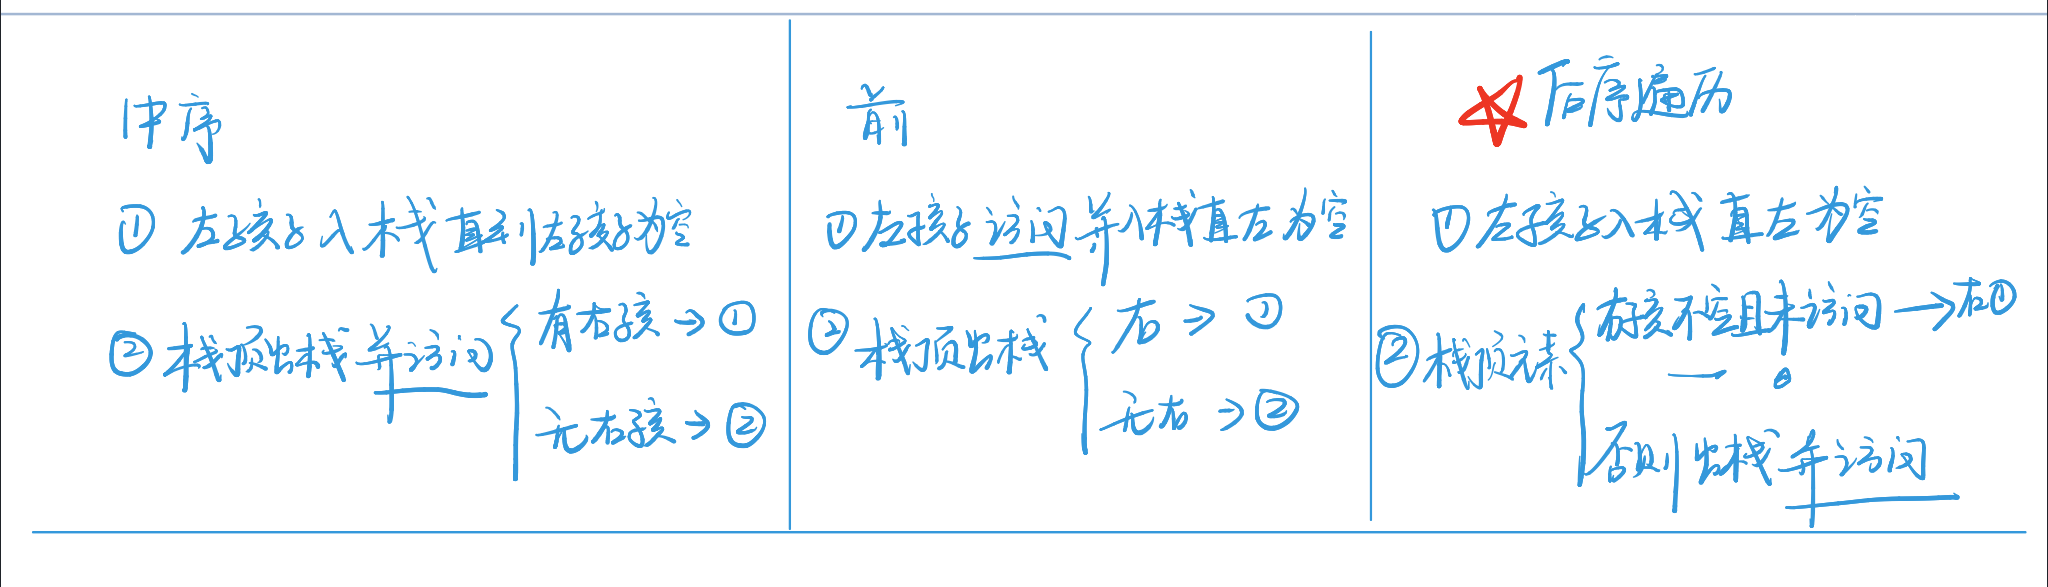 中序
① 左孩子入栈直到左孩子为空
② 栈顶出栈并访问 { 有右孩 → ①
无右孩 → ②
前
① 左孩子访问并入栈直左为空
② 栈顶出栈 { 右 → ①
无右 → ②
☆ 后序遍历
① 左孩子入栈直左为空
② 栈顶元素 { 右孩不空且未访问 → 右①
否则出栈并访问